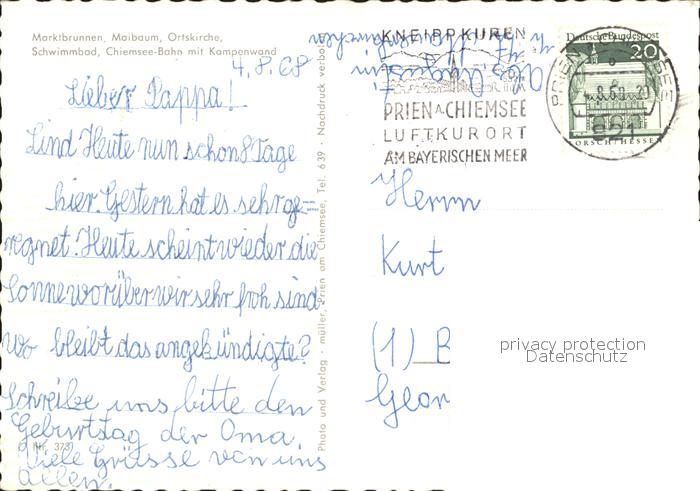 Marktbrunnen, Maibaum, Ortskirche,
Schwimmbad, Chiemsee-Bahn mit Kampenwand
4.8.68
Lieber Pappa!
Sind Heute nun schon 8 Tage
hier. Gestern hat es sehr ge=
regnet. Heute scheint wieder die
Sonne worüber wir sehr froh sind
Wo bleibt das angekündigte?
Schreibe uns bitte den
Geburtstag der Oma.
Viele Grüsse von uns
allen.
Nr. 373
Photo und Verlag · müller, Prien am Chiemsee, Tel. 639 · Nachdruck verboten
KNEIPPKUREN
PRIEN A. CHIEMSEE
LUFTKURORT
AM BAYERISCHEN MEER
PRIEN
821
Deutsche Bundespost
20
LORSCH/HESSEN
Herrn
Kurt
(1) B
Geor
privacy protection
Datenschutz